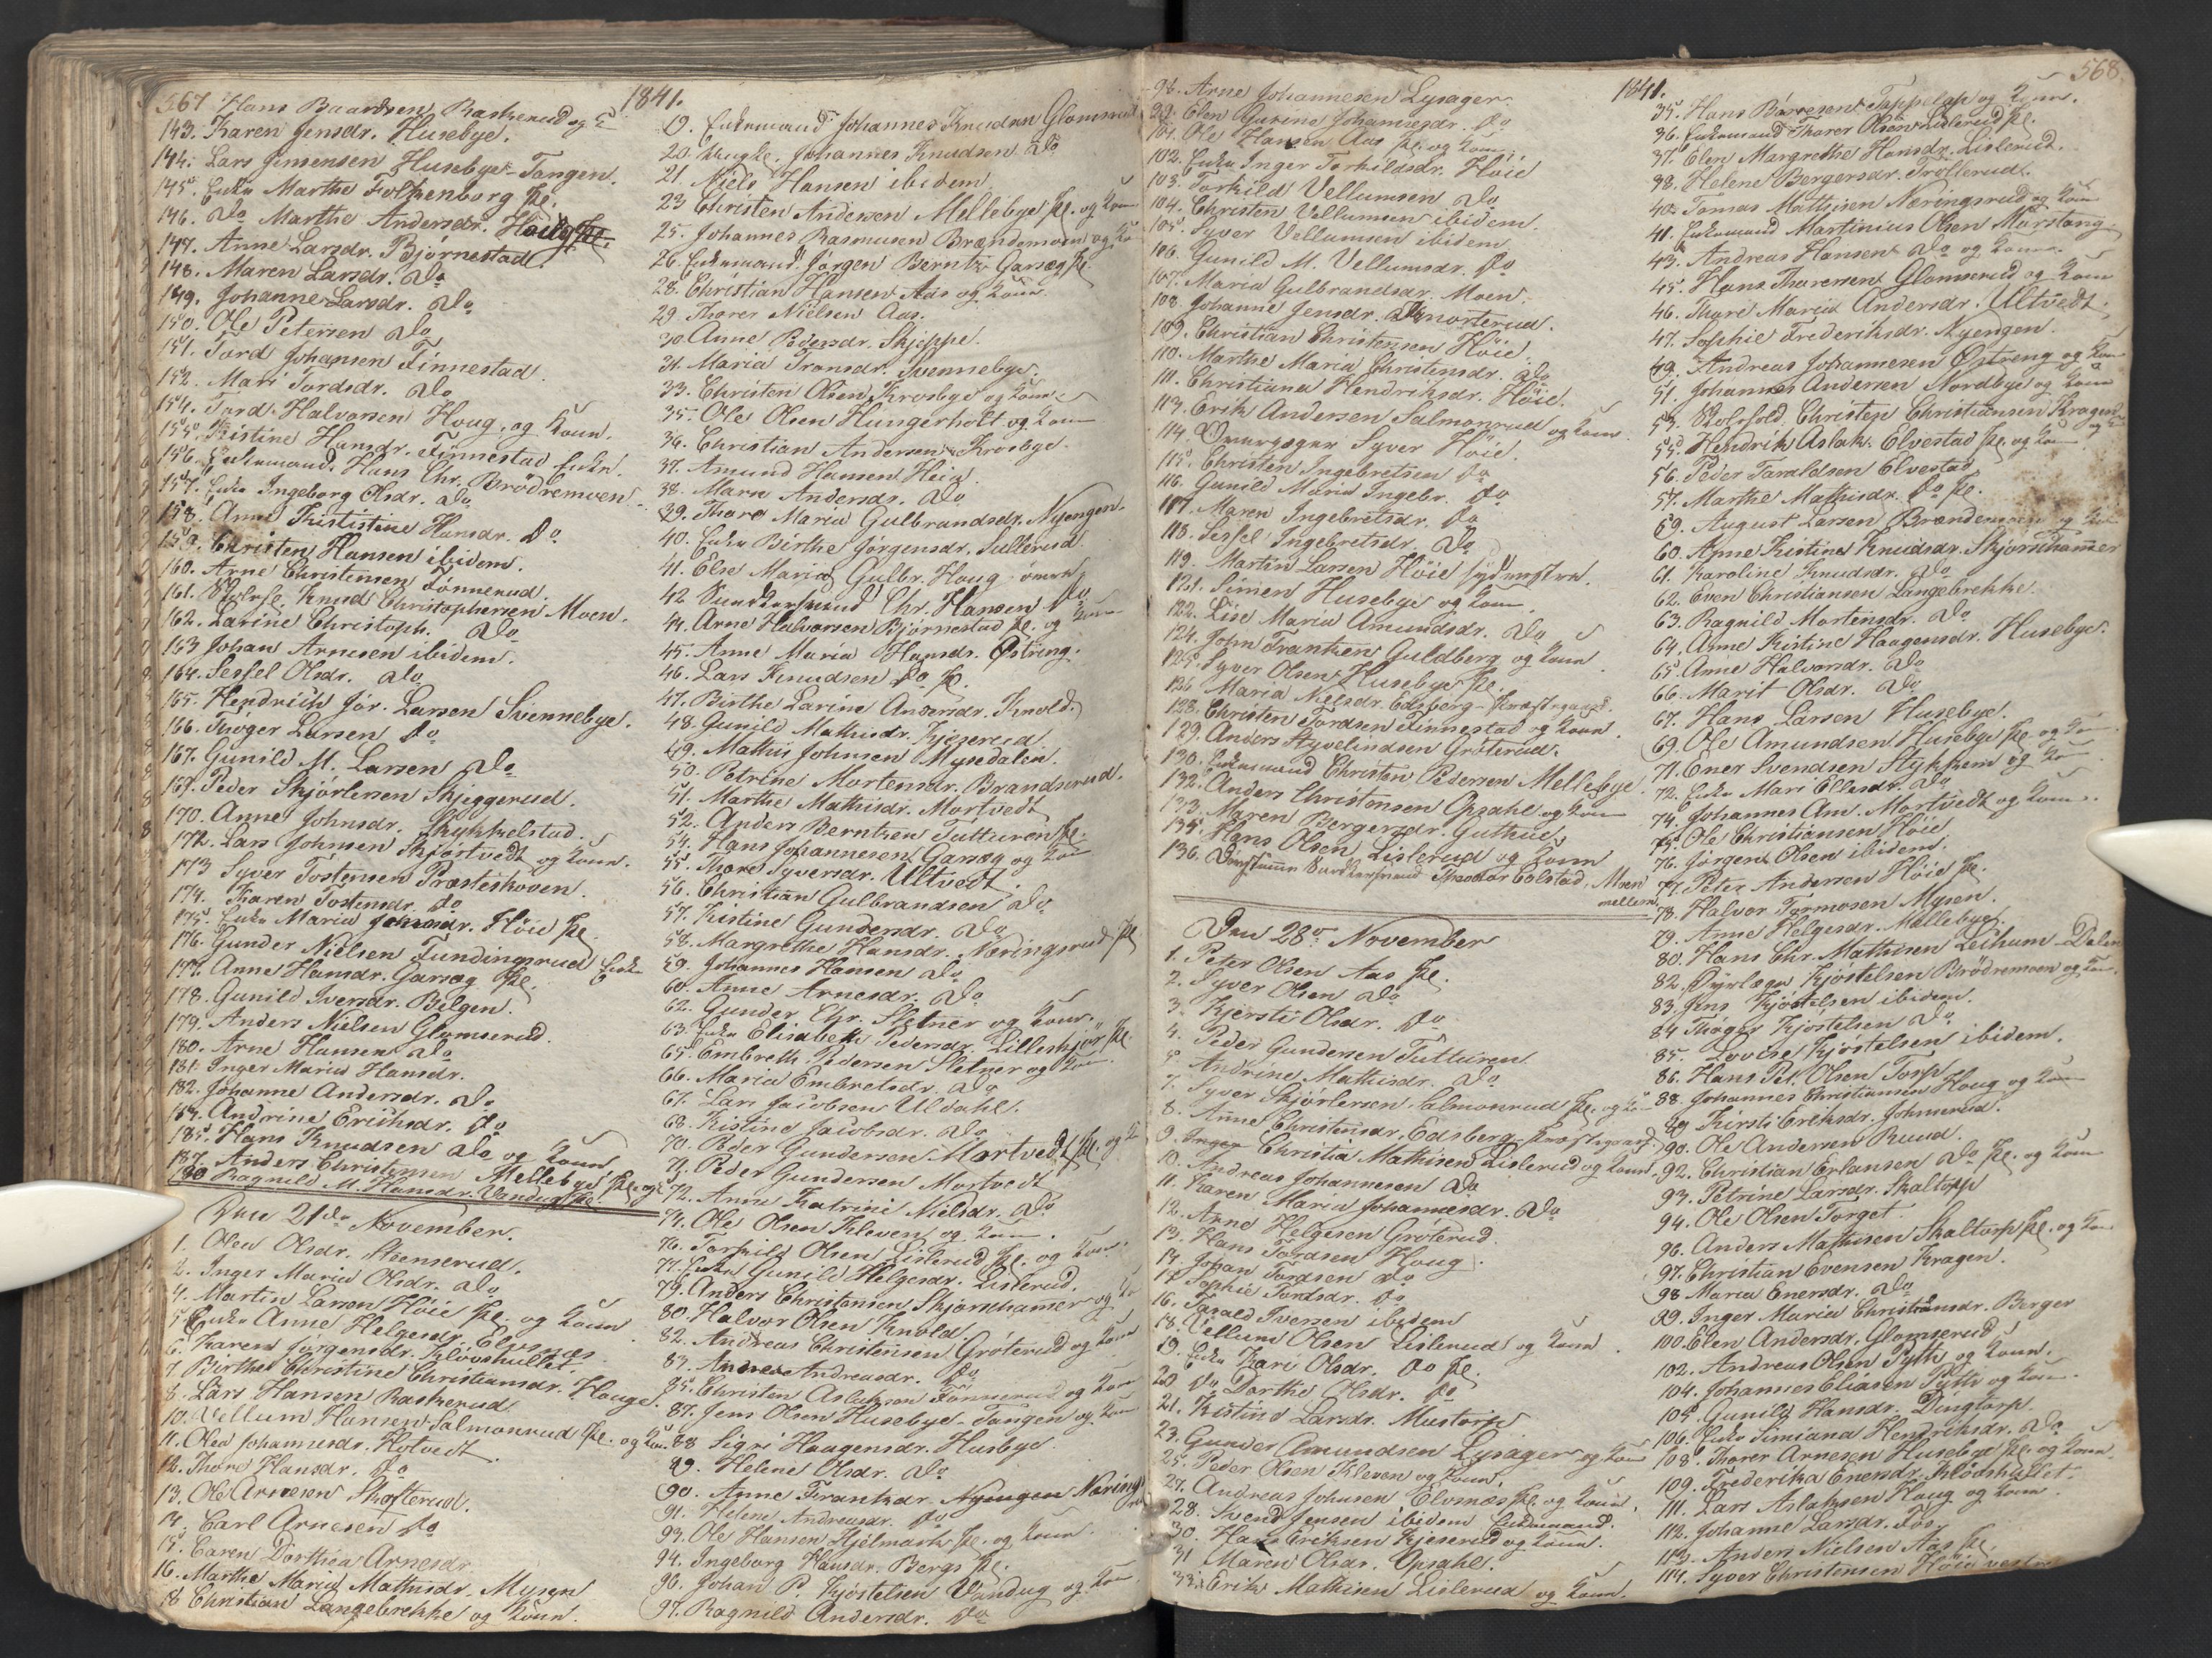 567
1841.
Hans Baardsen Raskerud og
143. Karen Jensdr. Husebye.
144. Lars Jensensen Husebye-Tangen.
145. Enke Marthe Folkenborg Pe.
146. Do Marthe Andersdr.
147. Anne Larsdr. Bjørnestad.
148. Maren Larsdr. Do
149. Johanne Larsdr. Do
150. Ole Petersen Do
151. Tord Johansen Finnestad
152. Mari Tordsdr. Do
154. Tord Halvorsen Houg, og Koun.
155. Kistine Hansdr. Finnestad Enke.
156. Enkemand. Hans Chr. Brødremoen
157. Enke Ingeborg Olsdr. Do
158. Anne Kististine Hansdr. Do.
159. Christen Hansen ibidem.
160. Arne Christensen Tønnerud.
161. Knud Christophersen Moen.
162. Larine Christoph. Do
163 Johan Arnesen ibidem.
164. Sessel Olsdr. Do
165. Hendrich Jør. Larsen Svennebye.
166. Thøger Larsen Do
167. Gunild M. Larsen Do
169. Peder Skjørlersen Skjeggerud.
170. Anne Johnsdr. Rykkelstad.
172. Lars Johnsen Skjørtvedt og Koun.
173 Syver Tostensen Præsteskoven.
174. Karen Tostensdr. Do
175. Enke Maria Høie Pe.
176. Gunder Nielsen Fundingsrud Enke
177. Anne Hansdr. Garseg Pe.
178. Gunild Iversdr. Bilgen.
179. Anders Nielsen Glomserud.
180. Arne Hansen Do
181. Inger Maria Hansdr.
182. Johanne Andersdr. Do
184. Andrine Erichsdr. Do
185. Hans Knudsen Do og Koun
187. Anders Christensen Mellebye Pe. og
Ragnild M. Hansdr. Vandug Pe.
Den 21de November.
1. Olea Olsdr. Steenserud.
2. Inger Maria Olsdr. Do
4. Martin Larsen Høie Pe. og Koun
5. Enke Anne Helgesdr. Elvesnæs
6. Karen Jørgensdr. Kløvshullet.
7. Birthe Christine Christiansdr. Houge.
8. Lars Hansen Raskerud
10. Vellum Hansen Salmonrud Pe. og Kou.
11. Olea Johannesdr. Hotvedt
12. Thore Hansdr. Do
13. Ole Arnesen Skofterud.
14. Carl Arnesen Do
15. Caren Dorthea Arnesdr
16. Marthe Maria Mathisdr. Mysen
18 Christian Langebrekke og Koun.
19. Enkemand Johannes Knudsen Glomserud
20. Johannes Knudsen Do
21. Niels Hansen ibidem
23 Christen Andersen Mellebye Pe. og Koun
25. Johannes Rasmusen Brændemoen og Ko
26. Enkemand. Jørgen Berntz. Garseg Pe.
28. Christian Hansen Aas og Koun.
29. Thorer Nielsen Aas.
30. Anne Pedersdr. Skjeppe.
31. Maria Tronsdr. Svennebye.
33. Christen Olsen Krosbye og Koun.
35. Ole Olsen Hungerholt og Koun
36. Christian Andersen Krosbye.
37. Amund Hansen Heia.
38. Maren Andersdr. Do
39. Thore Maria Gulbrandsdr. Nyengen.
40. Enke Birthe Jørgensdr. Sullerud
41. Else Maria Gulbr. Houg
42 Chr. Hansen Do
44. Arne Halvorsen Bjørnestad Pe. og Koun
45. Anne Maria Hansdr. Østring.
46. Lars Knudsen Do Pe.
47. Birthe Larine Andersdr. Knold.
48. Gunild Mathisdr. Kjeserud
49. Mathis Johnsen Mysedalen.
50. Petrine Mortensdr. Brandsrud.
51. Marthe Mathisdr. Mortvedt
52. Anders Berntzen Tutturen Pe.
54. Hans Johannesen Garseg og Kou
55. Thore Syversdr. Ultvedt
56. Christian Gulbrandsen Do
57. Kistine Gundersdr. Do
58. Margrethe Hansdr. Næringsrud Pe
59. Johannes Hansen Do
60. Anne Arnesdr. Do
62. Gunder Chr. Sletner og Koun.
63. Enke Elisabeth Pedersdr. Lilleskjør Pe
65. Embreth Pedersen Sletner og Koun.
66. Maria Embretsdr. Do
67. Lars Jacobsen Uldahl.
68. Kistine Jacobsdr. Do
70. Peder Gundersen Mortvedt Pe. og K
71. Peder Gundersen Mortvedt
72. Anne Katrine Nielsdr. Do
74. Ole Olsen Kleven og Koun.
76. Torkild Olsen Lislerud Pe. og Koun.
77. Enke Gunild Helgesdr. Lislerud.
79. Anders Christensen Skjørshamer og Ko
80. Halvor Olsen Knold.
82. Andreas Christensen Grøterud og Koun
83. Andrea Andreasdr. Do
85. Christen Aslaksen Tønnerud og Koun
87. Jens Olsen Husebye-Tangen og Koun
88 Sigri Haagensdr. Husbye
89. Helene Olsdr. Do
90. Anne Frantzdr. Nyengen Næring
91. Helene Andreasdr. Do
93. Ole Hansen Hjelmark Pe. og Koun.
94. Ingeborg Hansdr. Bergs Pe.
96. Johan P. Kjøstelsen Vandug og Kou
97. Ragnild Andersdr. Do
568
1841.
98. Arne Johannesen Lysager.
99. Elen Gurine Johannesdr. Do
101. Ole Hansen Aas Pe. og Koun
102. Enke Inger Torkildsdr. Høie
103. Torkild Vellumsen Do
104. Christen Vellumsen ibidem.
105. Syver Vellumsen ibidem
106. Gunild M. Vellumsdr. Do
107. Maria Gulbrandsdr. Moen.
108. Johanne Jensdr.
109. Christian Christensen Høie
110. Marthe Maria Christensdr. Do
111. Christiana Hendriksdr. Høie.
113. Erik Andersen Salmonrud og Koun.
114. Syver Høie.
115. Christen Ingebretsen Do
116. Gunild Maria Ingebr. Do
117. Maren Ingebretsdr. Do
118. Sessel Ingebretsdr. Do
119. Martin Larsen Høie
121. Simen Husebye og Koun.
122. Lise Maria Amundsdr. Do
124. John Frantzen Guldberg og Koun
125. Syver Olsen Husebye Pe.
126. Maria Nielsdr. Edsberg-Præstegaard.
128. Christen Tordsen Finnestad og Koun.
129. Anders Hyvelindsen Grøterud.
130. Enkemand Christen Pedersen Mellebye.
132. Anders Christensen Opsahl og Koun
133. Maren Bergersdr. Guthus
135. Hans Olsen Lislerud og Koun
136. Theodor Colstad, Moen
mellem.
Den 28de November
1. Peter Olsen Aas Pe.
2. Syver Olsen Do
3. Kjersti Olsdr. Do
4. Peder Gundersen Tutturen
5. Andrine Mathisdr. Do
7. Syver Skjørlersen Salmonrud Pe. og Ko
8. Anne Christensdr. Edsberg Præstegaard
9. Christia Mathisen Lislerud og Koun.
10. Andreas Johannesen Do
11. Karen Maria Johannesdr. Do
12. Arne Helgesen Grøterud
13. Hans Tordsen Houg.
14. Johan Tordsen Do
15 Sophie Tordsdr. Do
16. Tarald Iversen ibidem
18. Vellum Olsen Lislerud og Koun
19. Enke Kari Olsdr. Do Pe.
20 Do Dorthe Olsdr. Do
21. Kistine Larsdr. Mustorp
23. Gunder Amundsen Lysager og Koun
25. Peder Olsen Kleven og Koun
27. Andreas Johnsen Elvsnæs Pe. og Koun.
28. Svend Jensen ibidem Enkemand.
30. Hans Eriksen Kjeserud og Koun.
31 Maren Olsdr. Opsahl.
33. Erik Mathisen Lislerud og Koun.
35. Hans Børresen Tappelap og Koun.
36. Enkemand Thorer Olsen Lislerud Pe.
37. Elen Margrethe Hansdr. Lislerud.
38. Helene Bergersdr. Trollerud.
40. Tomas Mathisen Næringsrud og Koun
41. Enkemand Martinius Olsen Mørstang.
43. Andreas Hansen Do og Koun.
45. Hans Thoresen Glomserud og Koun
46. Thore Maria Andersdr. Ultvedt.
47. Sophie Frederiksdr. Nyengen.
49. Andreas Johannesen Østreng og Kou
51. Johannes Andersen Nordbye og Koun
53. Christen Christiansen Kragen
og
55. Hendrik Aslak. Elvestad Pe. og Kou
56. Peder Taraldsen Elvestad
57. Marthe Mathisdr. Do Pe.
59. August Larsen Brændemoen og Ko
60. Anne Kistine Knudsdr. Skjørshammer
61. Karoline Knudsdr. Do
62. Even Christiansen Langebrekke.
63. Ragnild Mortensdr. Do
64. Anne Kistine Haagensdr. Husebye.
65. Anne Halvorsdr. Do
66. Marit Olsdr. Do
67. Hans Larsen Husebye.
69. Ole Amundsen Husebye Pe. og Ko
71. Ener Svendsen Stykkem og Ko
72. Enke Mari Ellesdr. Do
74. Johannes Am. Mortvedt og Koun.
75. Ole Christiansen Høie
76. Jørgen Olsen ibidem.
77. Peter Andersen Høie Pe.
78. Halvor Tormosen Mysen.
79. Anne Helgesdr. Mellebye.
80. Hans Chr. Mathisen Lechum-Dalen
82. Kjøstelsen Brødremoen og Kou.
83. Jens Kjøstelsen ibidem.
84 Thøger Kjøstelsen Do
85. Lovise Kjøstelsen ibidem.
86. Hans Pet. Olsen Torp
88. Johannes Christiansen Houg og Kou
89 Kirsti Eriksdr. Johnsrud.
90. Ole Andersen Ruud.
92. Christian Erlansen Do Pe. og Koun
93. Petrine Larsdr. Skaltorp
94. Ole Olsen Torget
96. Anders Mathisen Skaltorp Pe. og Kou
97. Christian Evensen Kragen.
98 Maria Enersdr. Do
99. Inger Maria Christiansdr. Berger
100. Elen Andersdr. Glomserud
102. Andreas Olsen Pytth og Koun.
104. Johannes Eliasen Pytth og Koun.
105. Gunild Hansdr. Dingtorp.
106. Enke Simiana Hendriksdr. Do
108. Thorer Arnesen Husebye Pe. og Koun.
109. Frederikka Enersdr. Kløvshullet.
111. Lars Aslaksen Houg og Koun.
112. Johanne Larsdr. Fos
113. Anders Nielsen Aas Pe.
114. Syver Christensen Høie